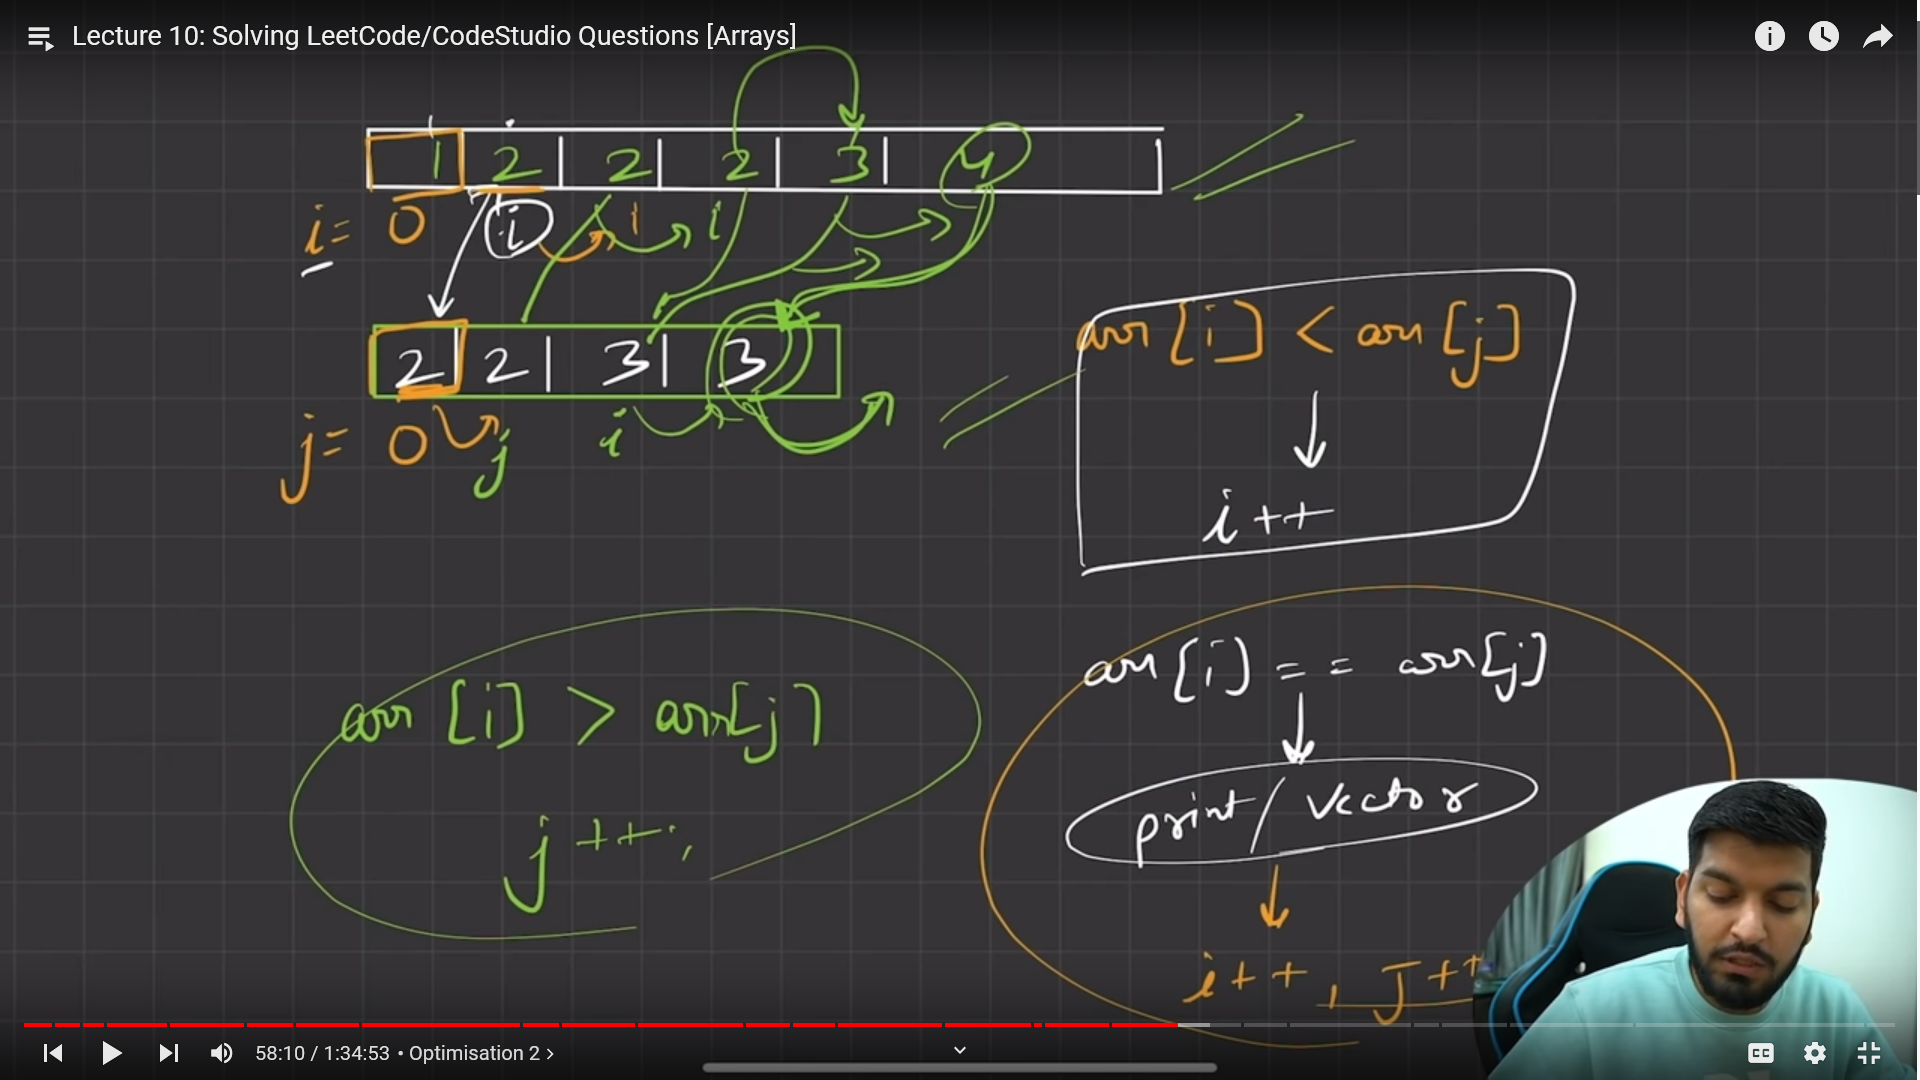 Lecture 10: Solving LeetCode/CodeStudio Questions [Arrays]
1 2 | 2 | 2 | 3 | 4
i = 0 i i i
2 | 2 | 3 | 3
j = 0 j i
arr [i] < arr [j]
i++
arr [i] > arr[j]
j++;
arr [i] == arr[j]
print / vector
i++, J++
58:10 / 1:34:53 • Optimisation 2 >
CC